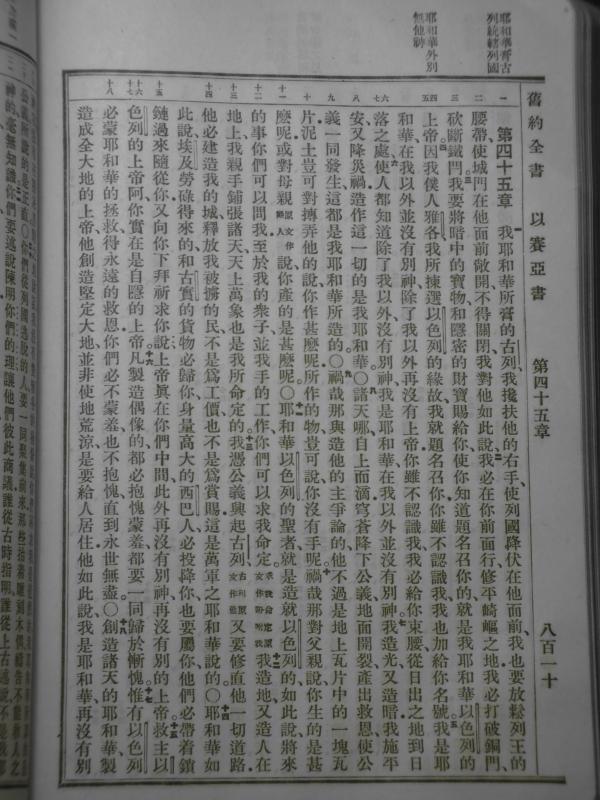 耶和華膏古
列統轄列國
耶和華外別
無他神
舊約全書 以賽亞書 第四十五章 八百一十
第四十五章 我耶和華所膏的古列我攙扶他的右手使列國降伏在他面前我也要放鬆列王的
腰帶使城門在他面前敞開不得關閉我對他如此說我必在你前面行修平崎嶇之地我必打破銅門
砍斷鐵閂我要將暗中的寶物和隱密的財寶賜給你使你知道題名召你的就是我耶和華以色列的
上帝因我僕人雅各我所揀選以色列的緣故我就題名召你你雖不認識我我也加給你名號我是耶
和華在我以外並沒有別神除了我以外再沒有上帝你雖不認識我我必給你束腰從日出之地到日
落之處使人都知道除了我以外沒有別神我是耶和華在我以外並沒有別神我造光又造暗我施平
安又降災禍造作這一切的是我耶和華○諸天哪自上而滴穹蒼降下公義地面開裂產出救恩使公
義一同發生這都是我耶和華所造的○禍哉那與造他的主爭論的他不過是地上瓦片中的一塊瓦
片泥土豈可對摶弄他的說你作甚麼呢所作的物豈可說你沒有手呢禍哉那對父親說你生的是甚
麼呢或對母親原文作婦人說你產的是甚麼呢○耶和華以色列的聖者就是造就以色列的如此說將來
的事你們可以問我至於我的衆子並我手的工作你們可以求我命定求我命定原文作吩咐我我造地又造人在
地上我親手鋪張諸天天上萬象也是我所命定的我憑公義興起古列古列原文作他又要修直他一切道路
他必建造我的城釋放我被擄的民不是爲工價也不是爲賞賜這是萬軍之耶和華說的○耶和華如
此說埃及勞碌得來的和古實的貨物必歸你身量高大的西巴人必投降你也要屬你他們必帶着鎖
鏈過來隨從你又向你下拜祈求你說上帝眞在你們中間此外再沒有別神再沒有別的上帝救主以
色列的上帝阿你實在是自隱的上帝凡製造偶像的都必抱愧蒙羞都要一同歸於慚愧惟有以色列
必蒙耶和華的拯救得永遠的救恩你們必不蒙羞也不抱愧直到永世無盡○創造諸天的耶和華製
造成全大地的上帝他創造堅定大地並非使地荒涼是要給人居住他如此說我是耶和華再沒有別